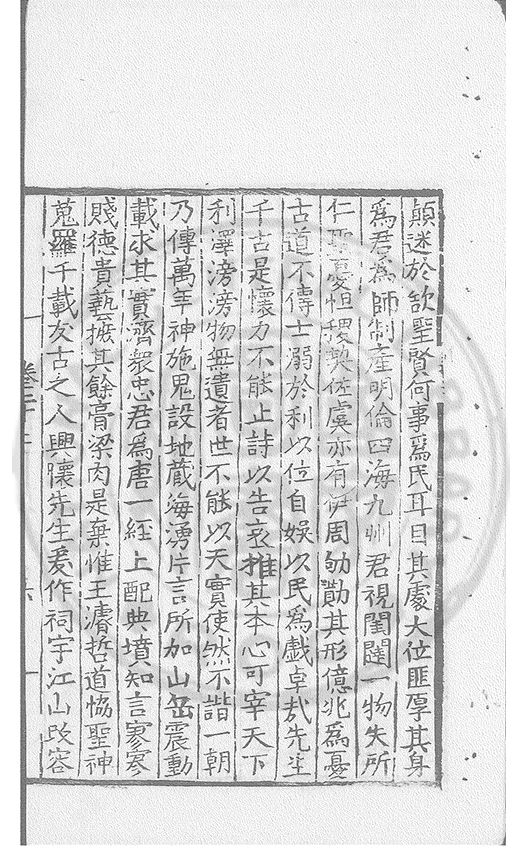 顛迷於欲聖賢何事爲民耳目其處大位匪厚其身
爲君爲師制產明倫四海九州君視閨闥一物失所
仁聖憂怛稷契佐虞亦有伊周劬勩其形億兆爲憂
古道不傳士溺於利以位自娛以民爲戲卓㢤先生
千古是懷力不能止詩以告哀推其本心可宰天下
利澤滂滂物無遺者世不能以天實使然不諧一朝
乃傳萬年神施鬼設地藏海湧片言所加山岳震動
載求其實濟衆忠君爲唐一經上配典墳知言寥寥
賤徳貴藝摭其餘膏梁肉是棄惟王濬哲道恊聖神
蒐羅千載友古之人興懷先生爰作祠宇江山改容
卷二十二